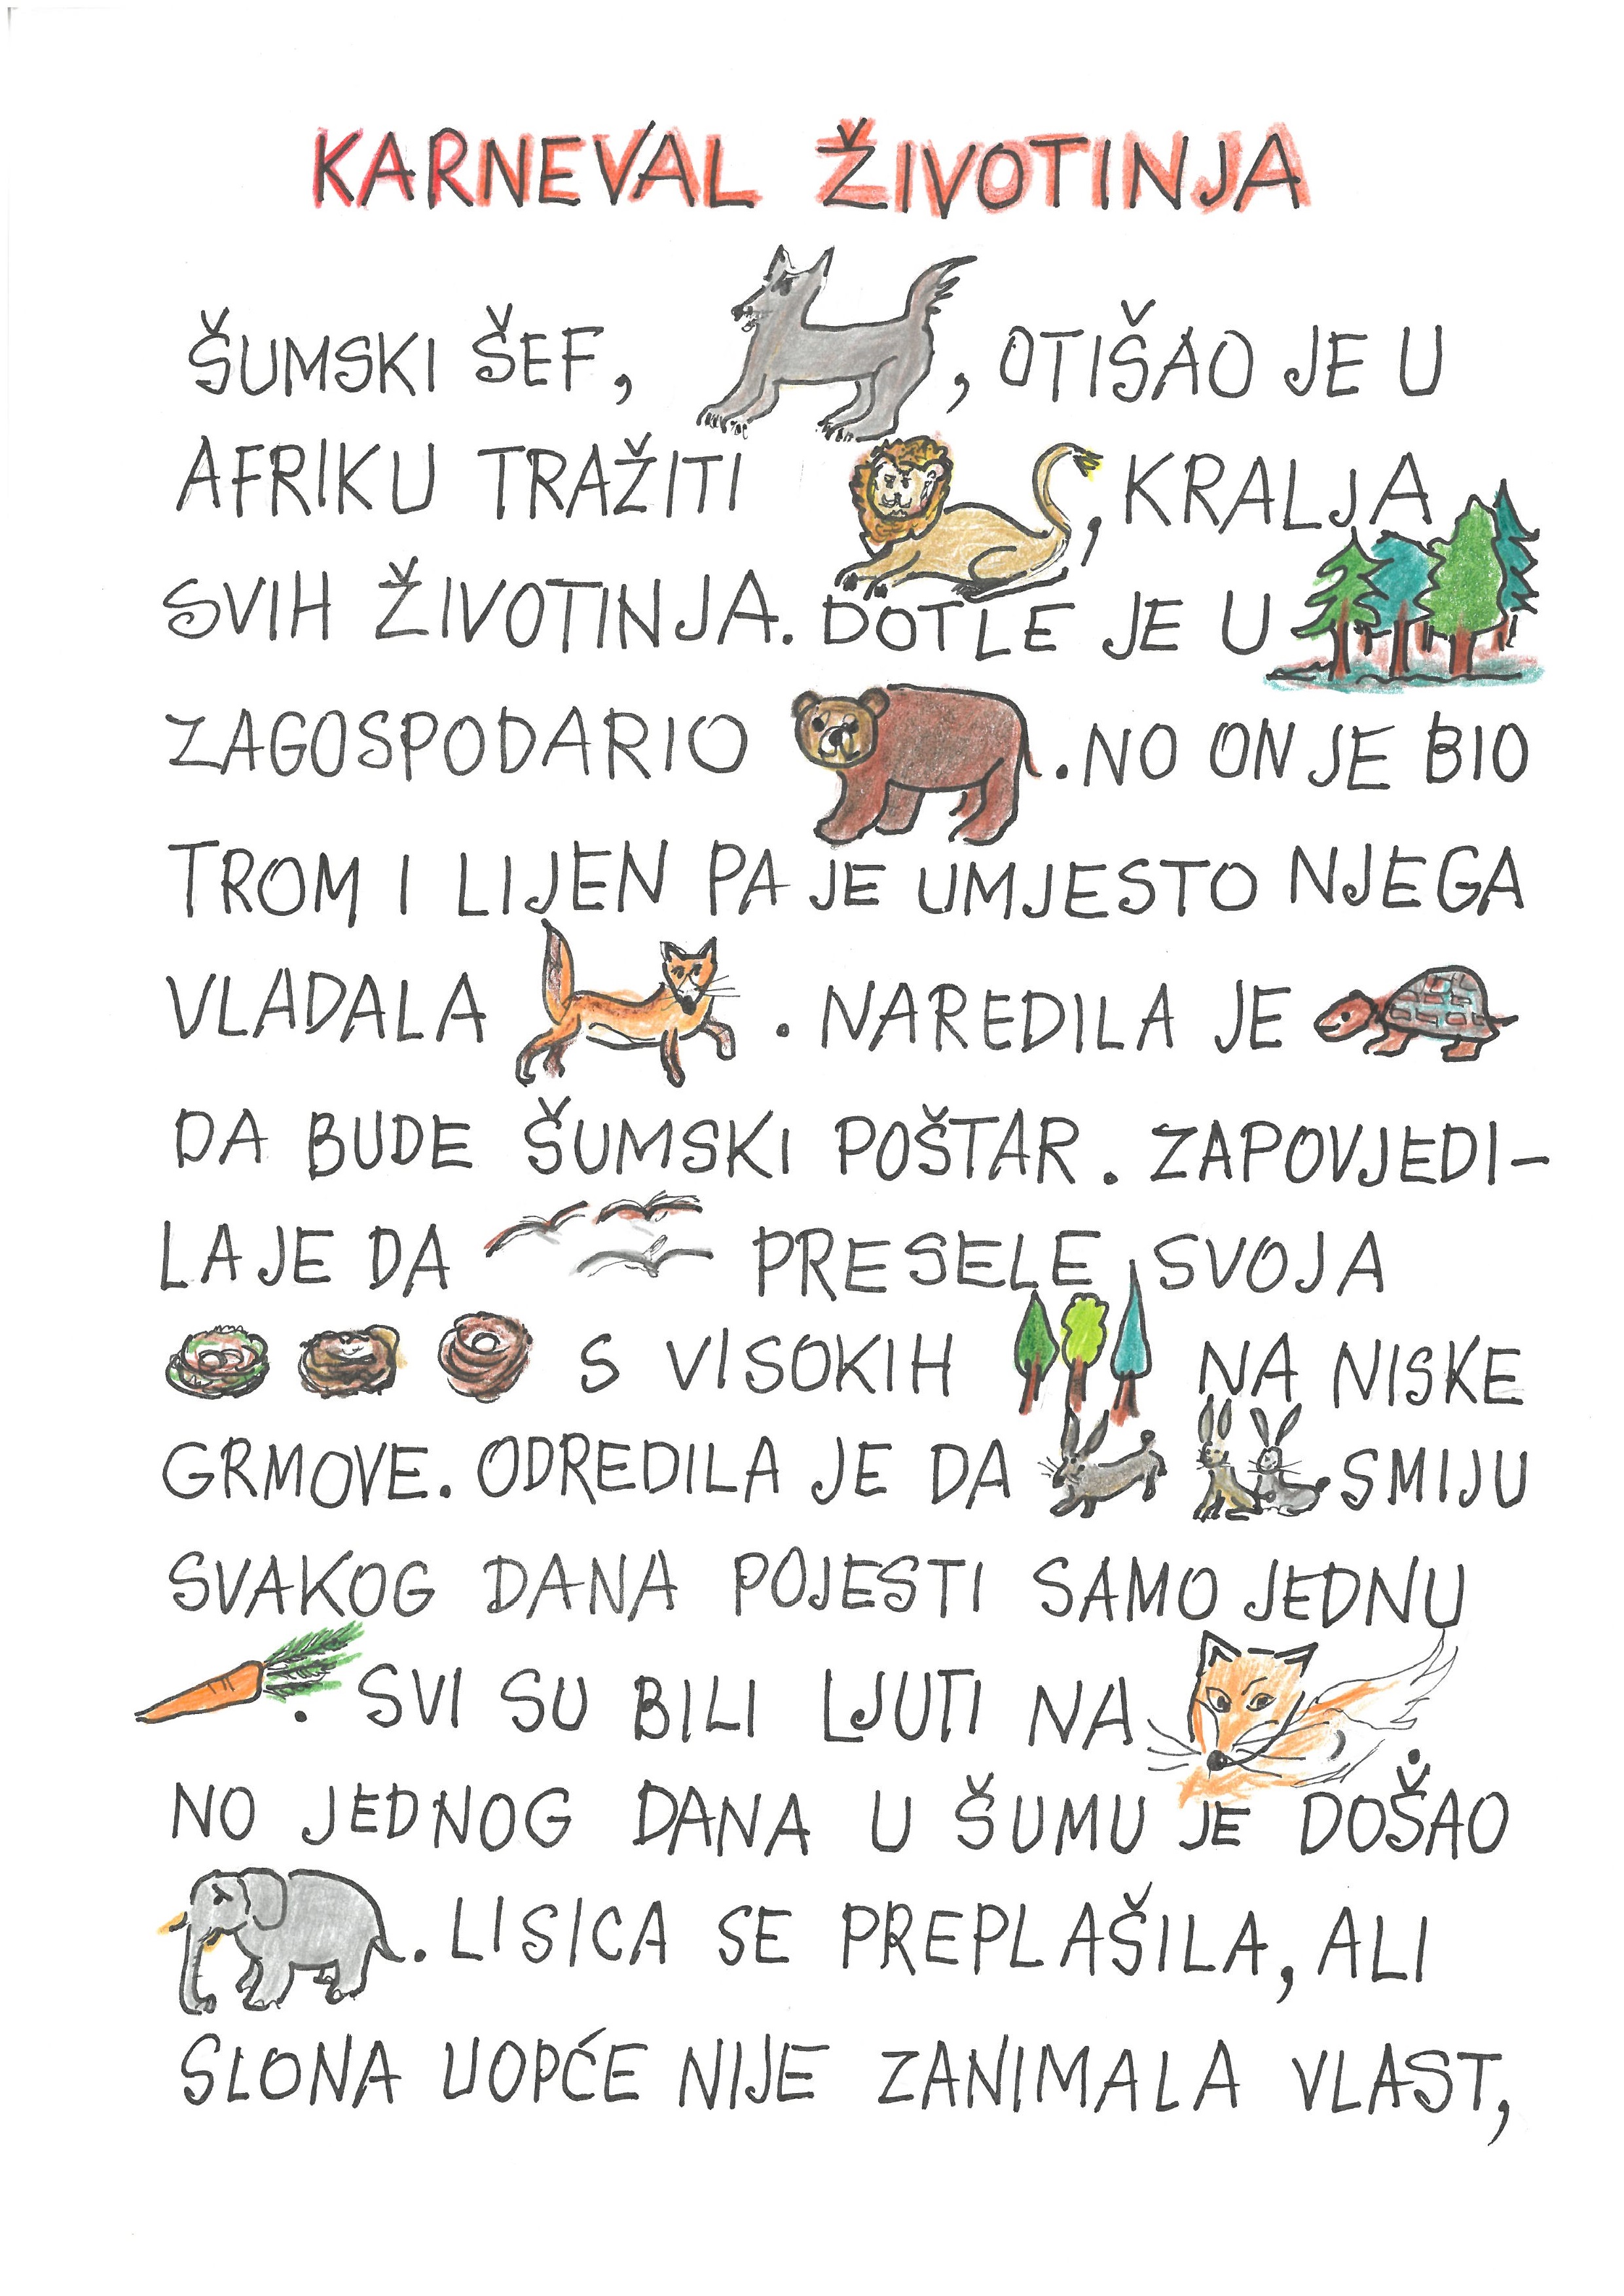 KARNEVAL ŽIVOTINJA
ŠUMSKI ŠEF, , OTIŠAO JE U
AFRIKU TRAŽITI , KRALJA
SVIH ŽIVOTINJA. DOTLE JE U
ZAGOSPODARIO . NO ON JE BIO
TROM I LIJEN PA JE UMJESTO NJEGA
VLADALA . NAREDILA JE
DA BUDE ŠUMSKI POŠTAR. ZAPOVJEDI-
LA JE DA PRESELE SVOJA
S VISOKIH NA NISKE
GRMOVE. ODREDILA JE DA SMIJU
SVAKOG DANA POJESTI SAMO JEDNU
. SVI SU BILI LJUTI NA .
NO JEDNOG DANA U ŠUMU JE DOŠAO
. LISICA SE PREPLAŠILA, ALI
SLONA UOPĆE NIJE ZANIMALA VLAST,